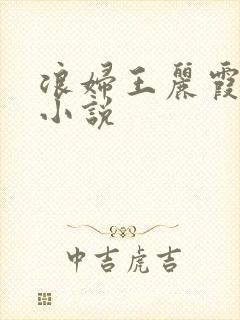 浪婦王麗霞
小説
中吉虎吉